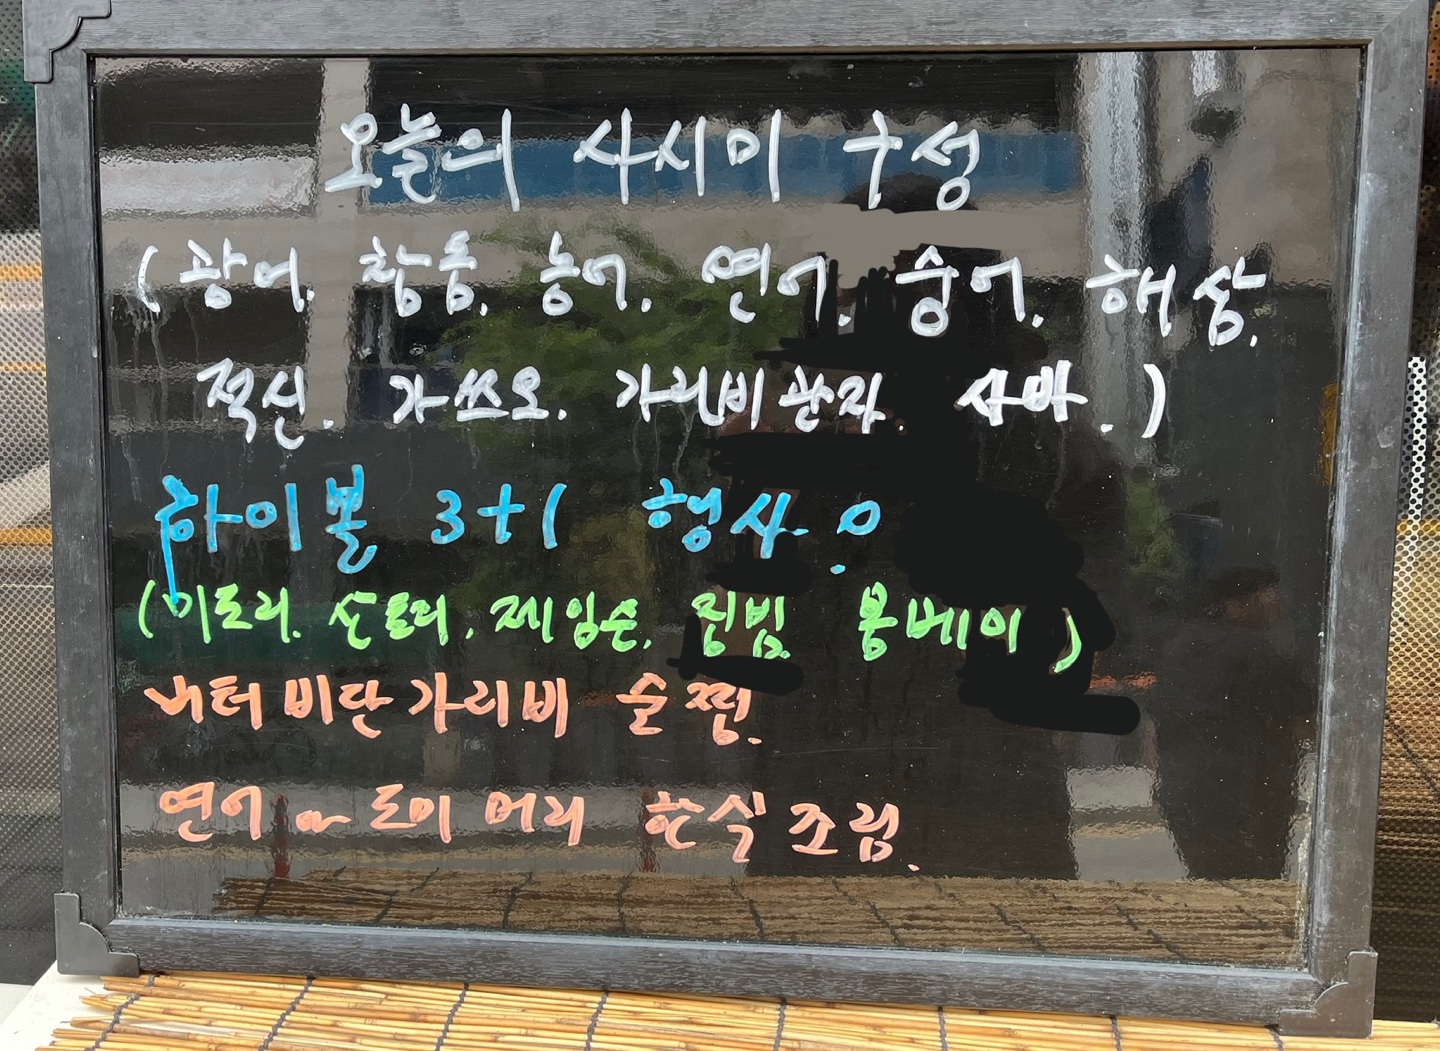 오늘의 사시미 구성
(광어. 참돔. 농어. 연어. 숭어. 해삼.
적신. 가쓰오. 가리비관자. 사바.)
하이볼 3+1 행사.
(이도리. 산토리. 제임슨. 짐빔. 봄베이)
버터 비단가리비 술찜.
연어 or 도미 머리 한식조림.